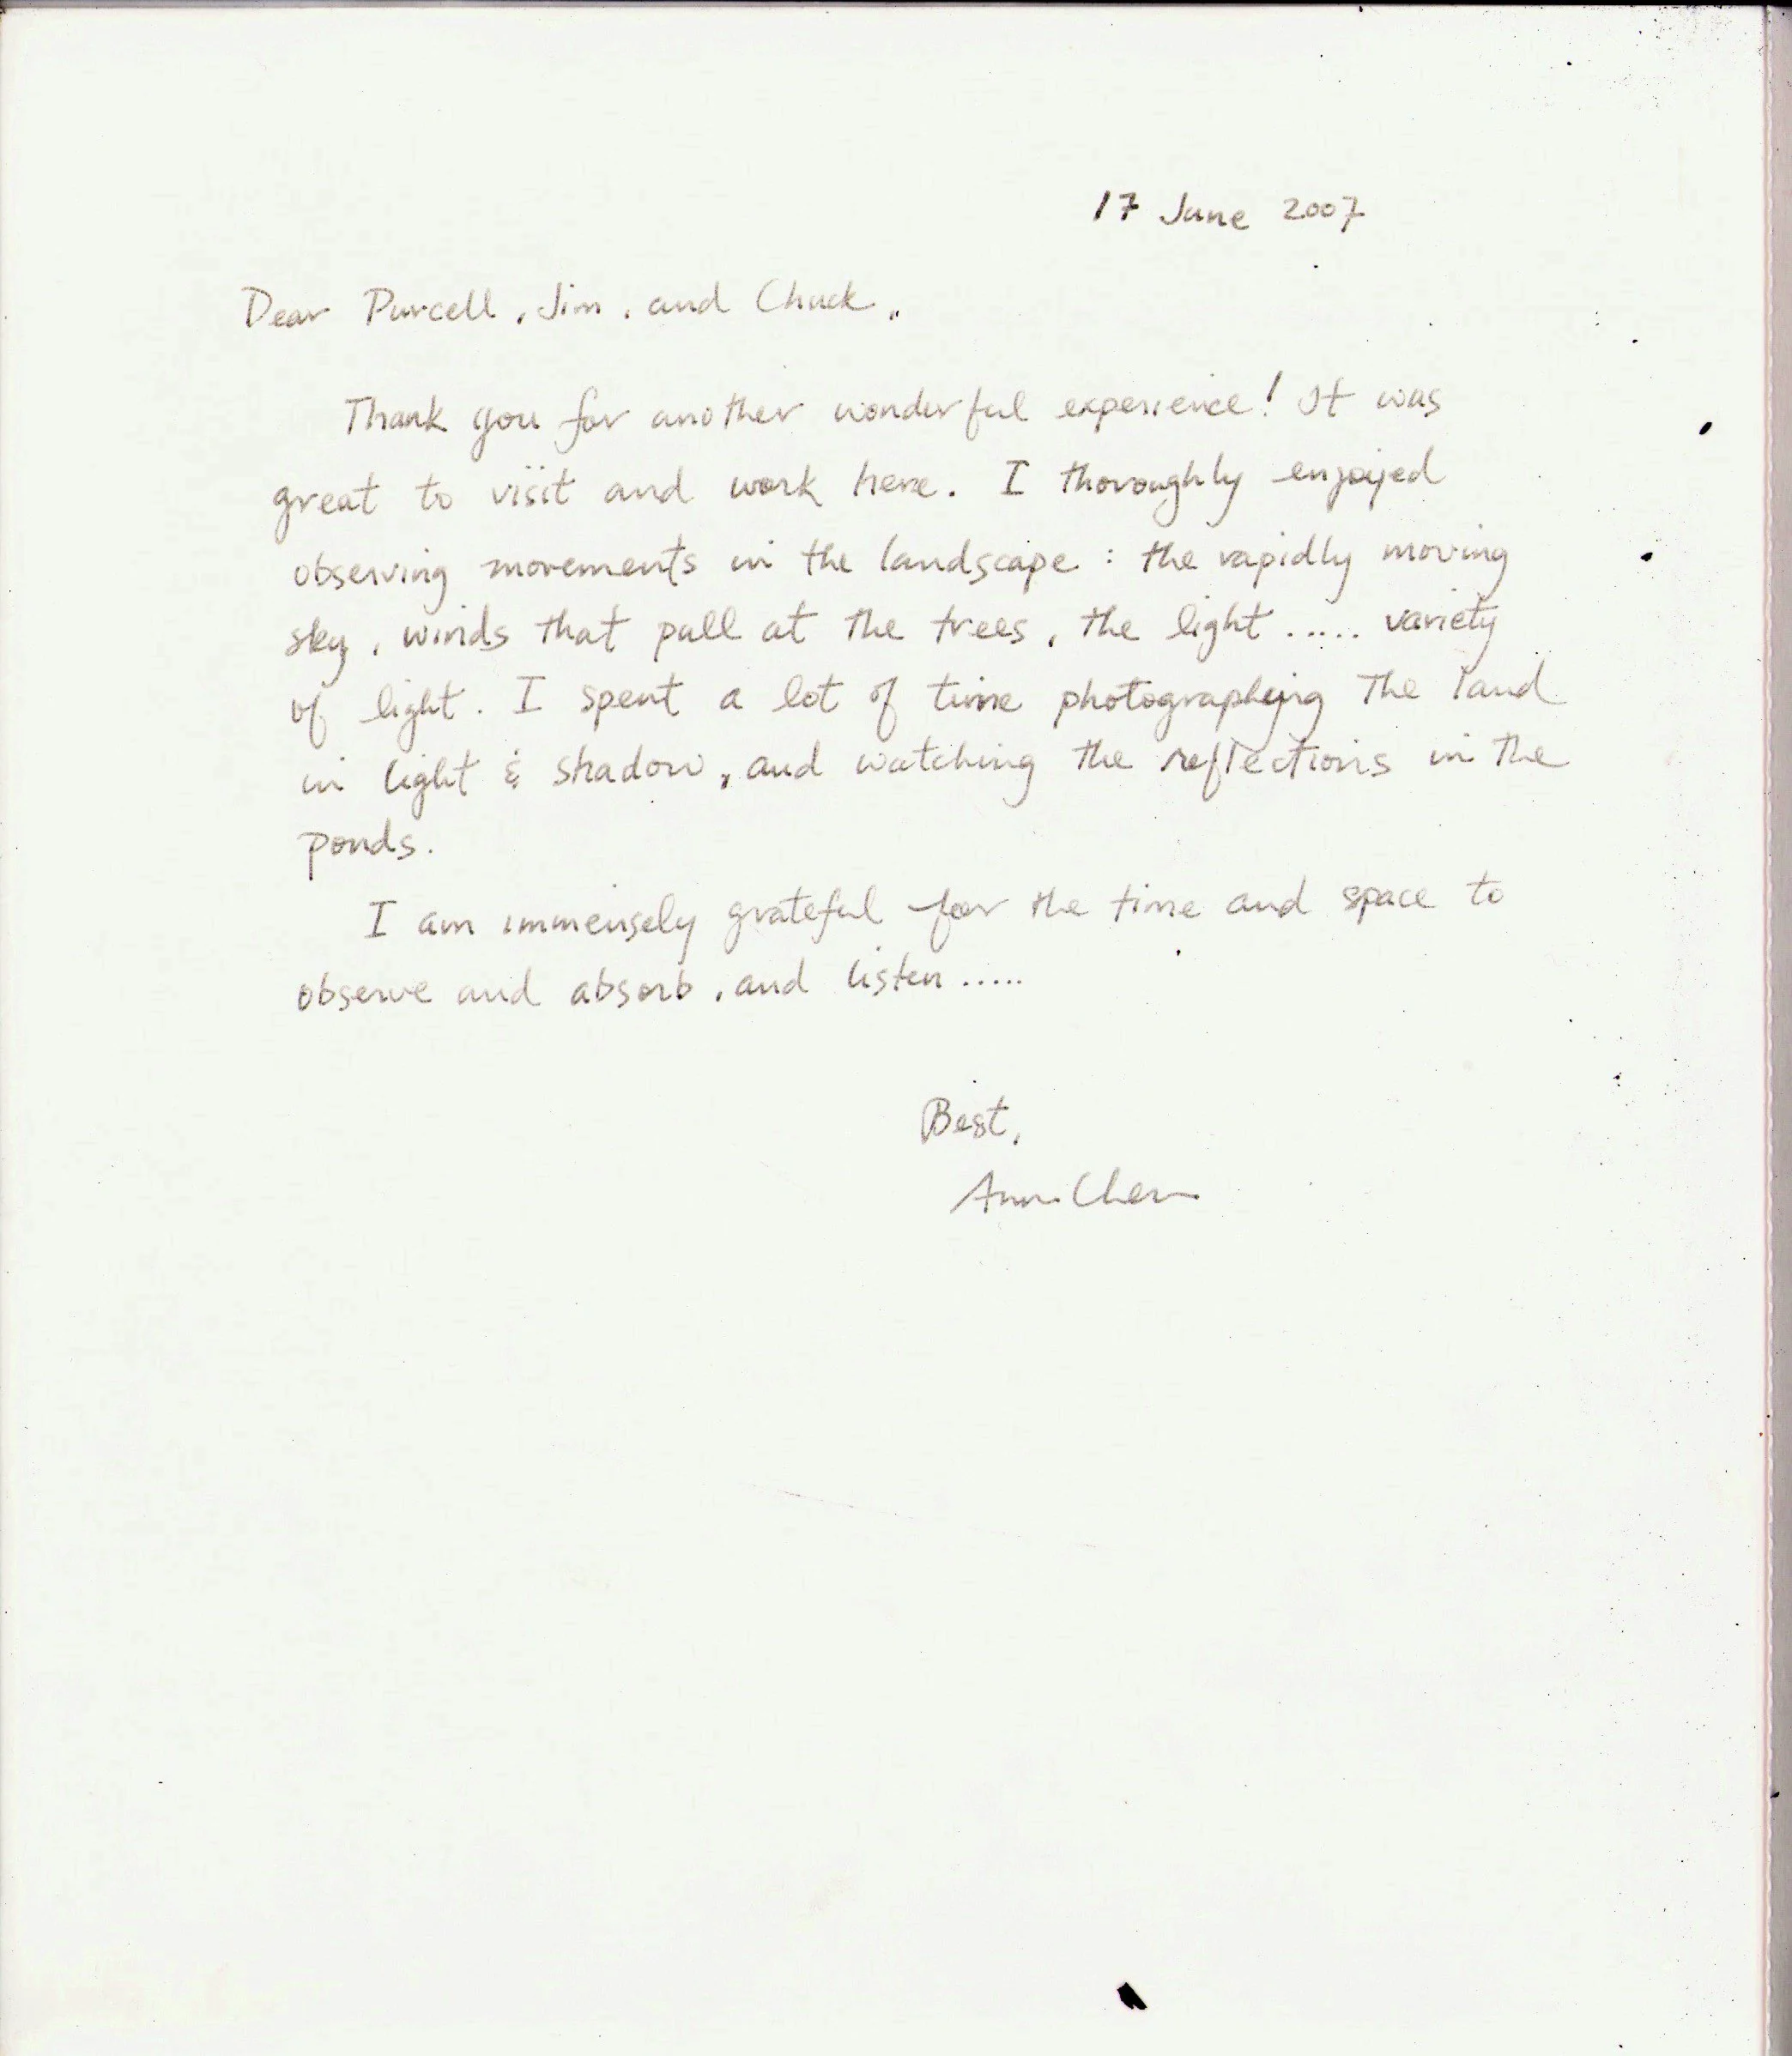 17 June 2007
Dear Purcell, Jim, and Chuck,
Thank you for another wonderful experience! It was
great to visit and work here. I thoroughly enjoyed
observing movements in the landscape: the rapidly moving
sky, winds that pull at the trees, the light ..... variety
of light. I spent a lot of time photographing the land
in light & shadow, and watching the reflections in the
ponds.
I am immensely grateful for the time and space to
observe and absorb, and listen .....
Best,
Ann Chen